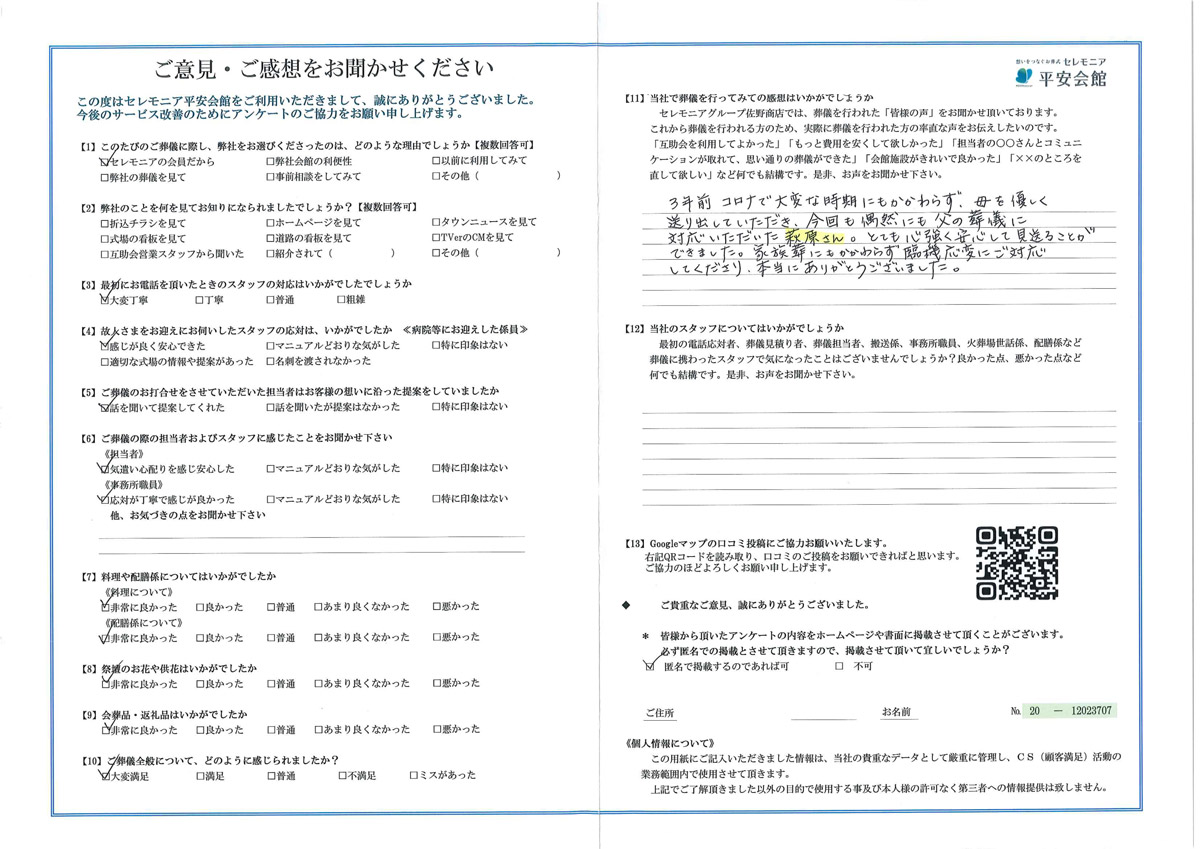 ご意見・ご感想をお聞かせください
この度はセレモニア平安会館をご利用いただきまして、誠にありがとうございました。
今後のサービス改善のためにアンケートのご協力をお願い申し上げます。
【1】このたびのご葬儀に際し、弊社をお選びくださったのは、どのような理由でしょうか【複数回答可】
☑セレモニアの会員だから □弊社会館の利便性 □以前に利用してみて
□弊社の葬儀を見て □事前相談をしてみて □その他（ ）
【2】弊社のことを何を見てお知りになられましたでしょうか？【複数回答可】
□折込チラシを見て □ホームページを見て □タウンニュースを見て
□式場の看板を見て □道路の看板を見て □TVerのCMを見て
□互助会営業スタッフから聞いた □紹介されて（ ） □その他（ ）
【3】最初にお電話を頂いたときのスタッフの対応はいかがでしたでしょうか
☑大変丁寧 □丁寧 □普通 □粗雑
【4】故人さまをお迎えにお伺いしたスタッフの応対は、いかがでしたか ≪病院等にお迎えした係員≫
☑感じが良く安心できた □マニュアルどおりな気がした □特に印象はない
□適切な式場の情報や提案があった □名刺を渡されなかった
【5】ご葬儀のお打合せをさせていただいた担当者はお客様の想いに沿った提案をしていましたか
☑話を聞いて提案してくれた □話を聞いたが提案はなかった □特に印象はない
【6】ご葬儀の際の担当者およびスタッフに感じたことをお聞かせ下さい
《担当者》
☑気遣い心配りを感じ安心した □マニュアルどおりな気がした □特に印象はない
《事務所職員》
☑応対が丁寧で感じが良かった □マニュアルどおりな気がした □特に印象はない
他、お気づきの点をお聞かせ下さい
【7】料理や配膳係についてはいかがでしたか
《料理について》
☑非常に良かった □良かった □普通 □あまり良くなかった □悪かった
《配膳係について》
☑非常に良かった □良かった □普通 □あまり良くなかった □悪かった
【8】祭壇のお花や供花はいかがでしたか
☑非常に良かった □良かった □普通 □あまり良くなかった □悪かった
【9】会葬品・返礼品はいかがでしたか
☑非常に良かった □良かった □普通 □あまり良くなかった □悪かった
【10】ご葬儀全般について、どのように感じられましたか？
☑大変満足 □満足 □普通 □不満足 □ミスがあった
想いをつなぐお葬式 セレモニア
平安会館
【11】当社で葬儀を行ってみての感想はいかがでしょうか
セレモニアグループ佐野商店では、葬儀を行われた「皆様の声」をお聞かせ頂いております。
これから葬儀を行われる方のため、実際に葬儀を行われた方の率直な声をお伝えしたいのです。
「互助会を利用してよかった」「もっと費用を安くして欲しかった」「担当者の〇〇さんとコミュニ
ケーションが取れて、思い通りの葬儀ができた」「会館施設がきれいで良かった」「××のところを
直して欲しい」など何でも結構です。是非、お声をお聞かせ下さい。
3年前 コロナで大変な時期にもかかわらず、母を優しく
送り出していただき、今回も偶然にも父の葬儀に
対応いただいた萩原さん。とても心強く安心して見送ることが
できました。家族葬にもかかわらず臨機応変にご対応
してくださり、本当にありがとうございました。
【12】当社のスタッフについてはいかがでしょうか
最初の電話応対者、葬儀見積り者、葬儀担当者、搬送係、事務所職員、火葬場世話係、配膳係など
葬儀に携わったスタッフで気になったことはございませんでしょうか？良かった点、悪かった点など
何でも結構です。是非、お声をお聞かせ下さい。
【13】Googleマップの口コミ投稿にご協力お願いいたします。
右記QRコードを読み取り、口コミのご投稿をお願いできればと思います。
ご協力のほどよろしくお願い申し上げます。
◆ ご貴重なご意見、誠にありがとうございました。
＊ 皆様から頂いたアンケートの内容をホームページや書面に掲載させて頂くことがございます。
必ず匿名での掲載とさせて頂きますので、掲載させて頂いて宜しいでしょうか？
☑ 匿名で掲載するのであれば可 □ 不可
ご住所 お名前 № 20 － 12023707
《個人情報について》
この用紙にご記入いただきました情報は、当社の貴重なデータとして厳重に管理し、ＣＳ（顧客満足）活動の
業務範囲内で使用させて頂きます。
上記でご了解頂きました以外の目的で使用する事及び本人様の許可なく第三者への情報提供は致しません。